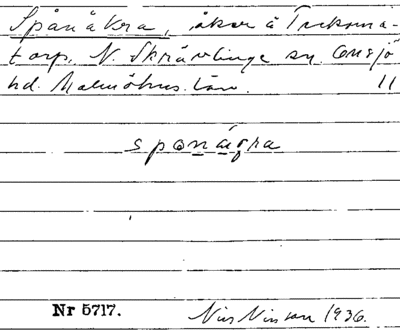 Spånåkra, åker å Truksma-
torp, N. Skrävlinge sn. Onsjö
hd. Malmöhus län. 11
sponágra
Nr 5717.
Nils Nilsson 1936.